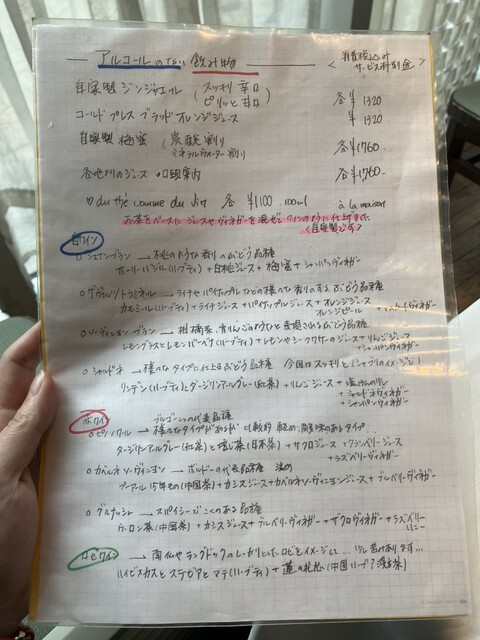 アルコールのない飲み物 ＜消費税込み サービス料別途＞
自家製 ジンジャエール (スッキリ 辛口 ピリッと 甘口) 各¥1320
コールド プレス ブラッド オレンジジュース ¥1320
自家製 梅蜜 (炭酸割り ミネラルウォーター割り 各¥1,760-
各地村のジュース 口頭案内 各¥1,760-
♡ du thé comme du vin 各 ¥1100 100ml à la maison
お茶をベースに ジュースやヴィネガーを混ぜて ワインのように仕上げました
＜自家製です＞
白ワイン
○シュナンブラン → 白桃のような香りのぶどう品種
ホーリーバジル(ハーブティ) + 白桃ジュース + 梅蜜 + シャンパンヴィネガー
○ゲヴュルツトラミネール → ライチやパイナップルなどの様々な香りのするぶどう品種
カモミール(ハーブティ) + ライチジュース + パイナップルジュース + オレンジジュース
オレンジピール
○ソーヴィニヨン ブラン → 柑橘系、青りんごのようなと表現されるぶどう品種
レモングラスとレモンバーベナ(ハーブティ) + レモンやシークワサーのジュース + りんごジュース
+ シャンパンヴィネガー
○シャルドネ → 様々なタイプに仕上るぶどう品種 今回はスッキリと(シャブリのイメージ)
リンデン(ハーブティ)とダージリンアールグレー(紅茶) + りんごジュース
+ シャルドネヴィネガー
+ シャンパンヴィネガー
赤ワイン ブルゴーニュの代表品種
○ピノノワール → 様々なタイプがあるが 比較的 軽め、酸味のあるタイプ
ダージリンアールグレー(紅茶)とほうじ茶(日本茶) + ザクロジュース + クランベリージュース
+ ラズベリーヴィネガー
○カベルネ ソーヴィニヨン → ボルドーの代表品種 濃め
プーアール 15年もの(中国茶) + カシスジュース + カベルネソーヴィニヨンジュース + ブルーベリーヴィネガー
○グルナッシュ → スパイシーでこくのある品種
ウーロン茶(中国茶) + カシスジュース + ブルーベリーヴィネガー + ザクロヴィネガー + ラズベリー
ロゼワイン → 南仏やラングドックのしっかりとした ロゼをイメージし...
ハイビスカスと ステビアと マテ(ハーブティ) + 蓮の